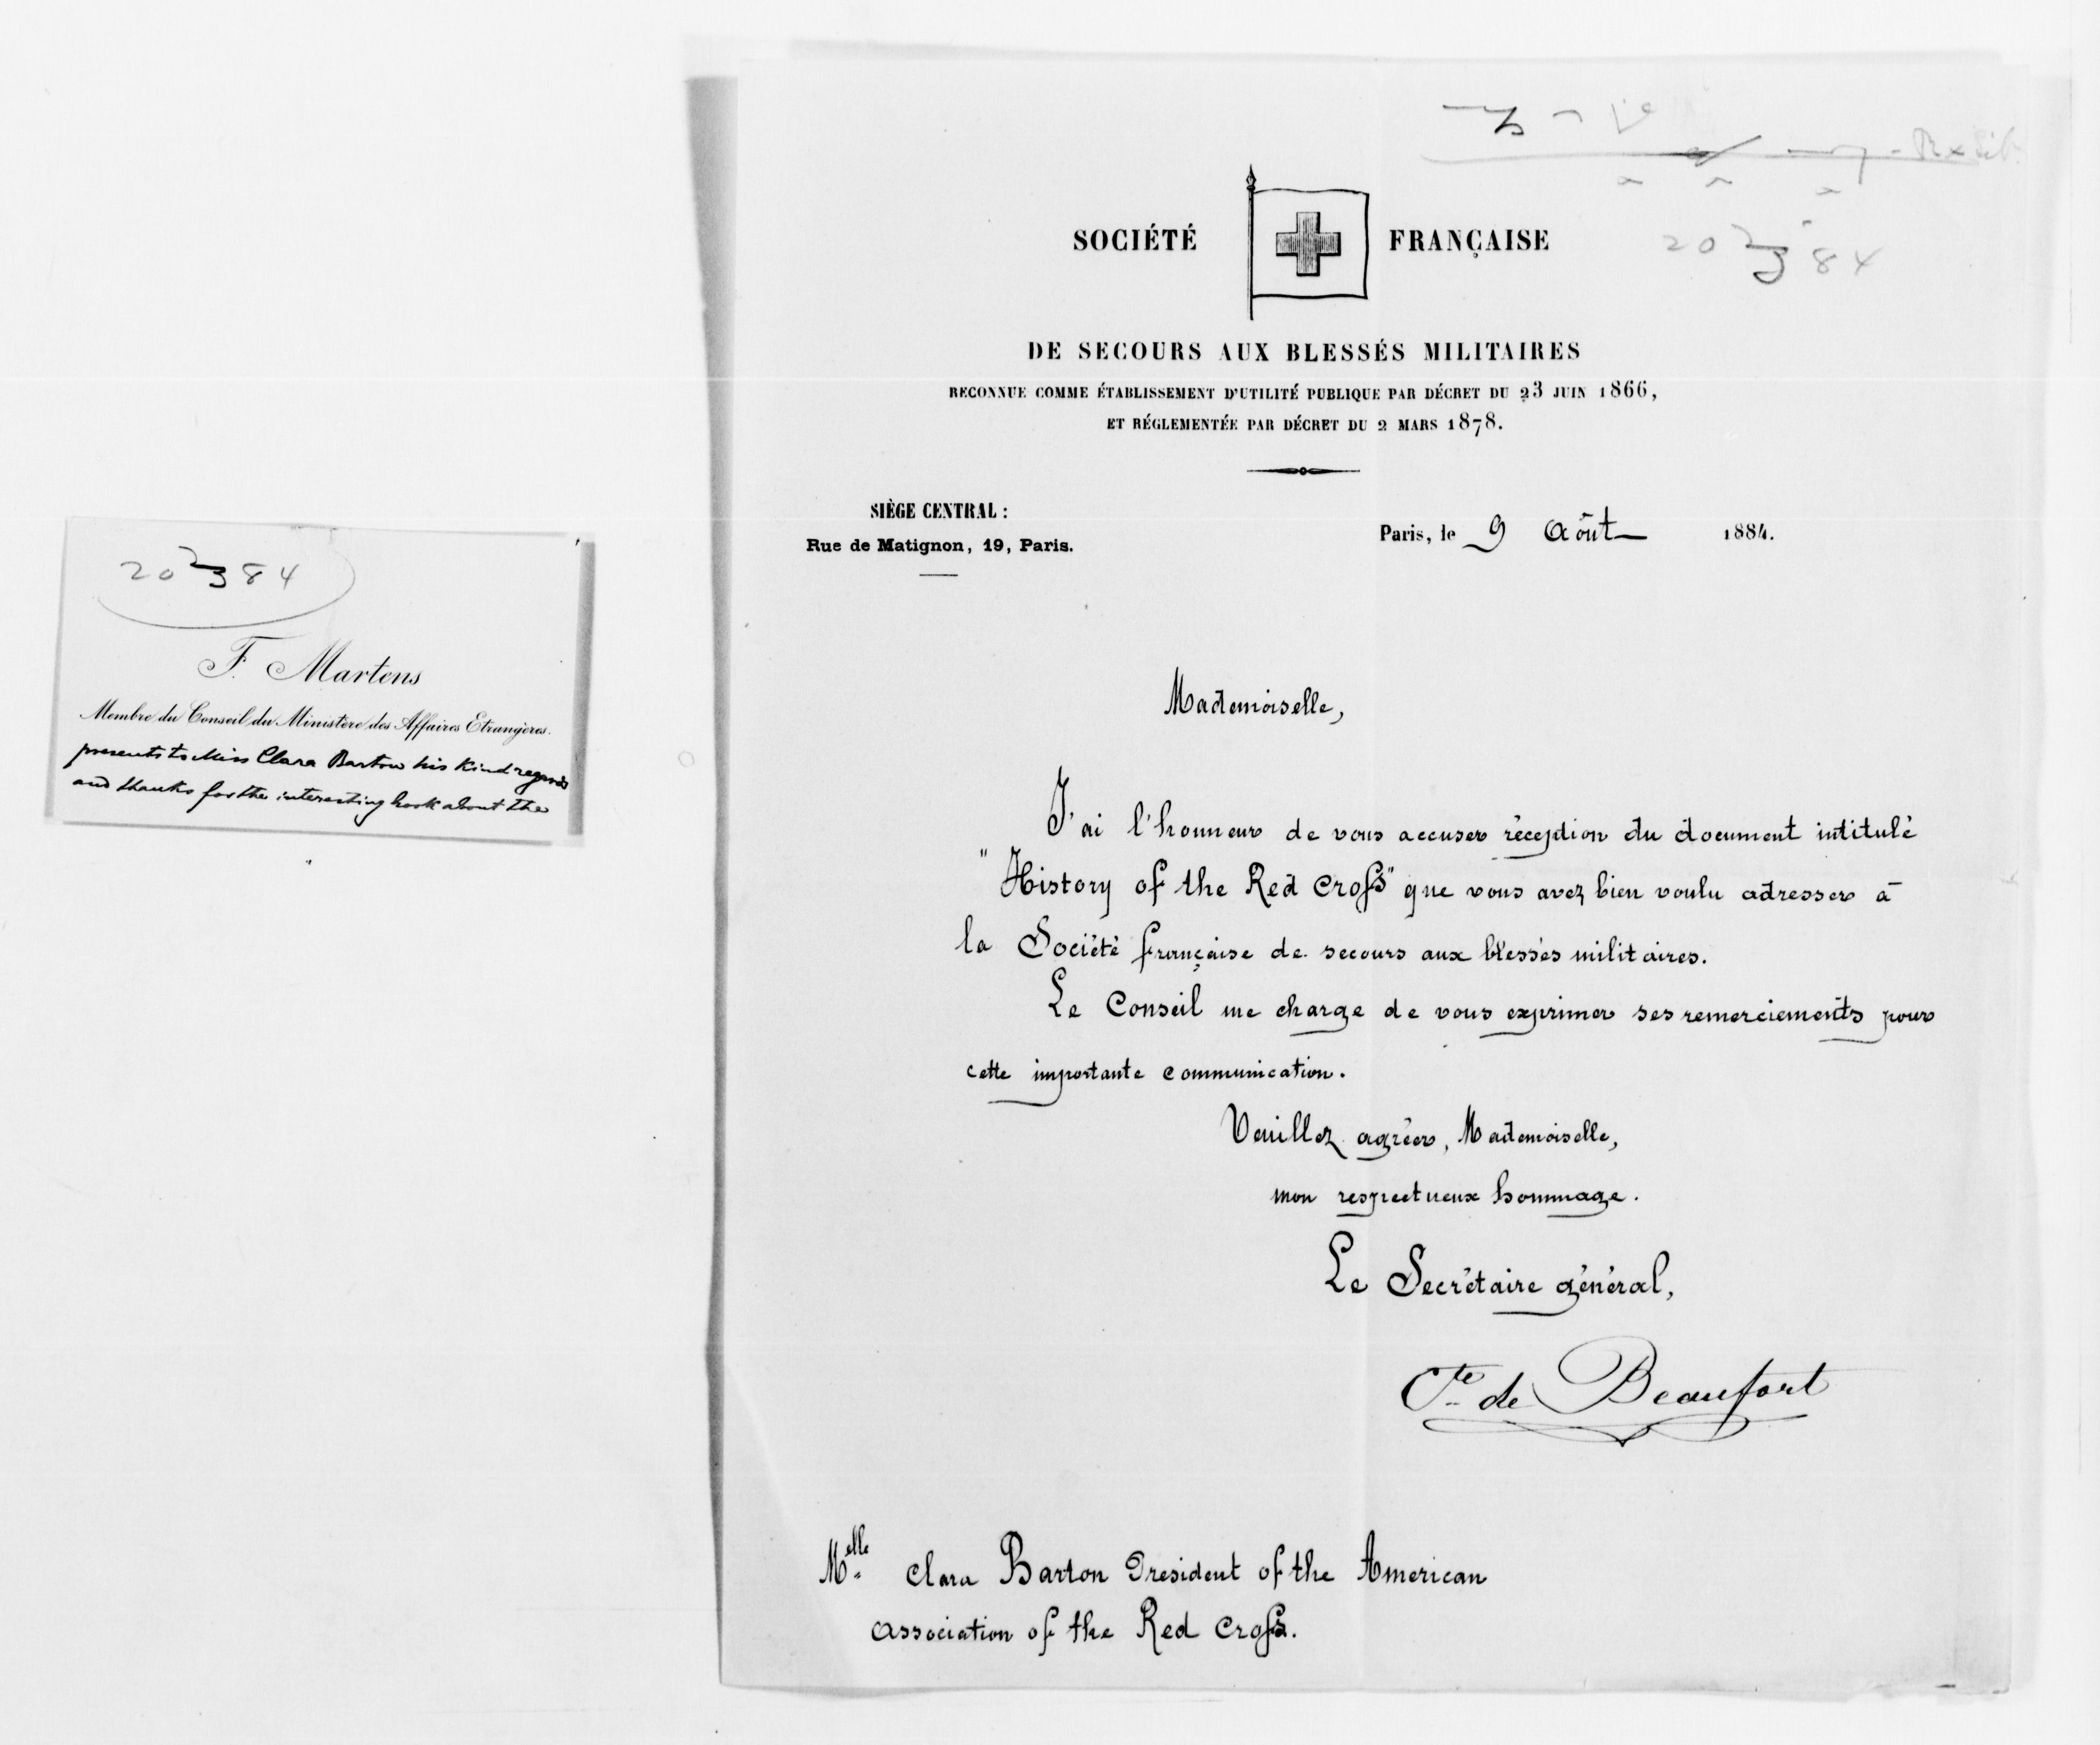 20 84
F. Martens
Membre du Conseil du Ministère des Affaires Etrangères.
presents to Miss Clara Barton his kind regards
and thanks for the interesting book about the
20 84
SOCIÉTÉ FRANÇAISE
DE SECOURS AUX BLESSÉS MILITAIRES
RECONNUE COMME ÉTABLISSEMENT D'UTILITÉ PUBLIQUE PAR DÉCRET DU 23 JUIN 1866,
ET RÉGLEMENTÉE PAR DÉCRET DU 2 MARS 1878.
SIÈGE CENTRAL :
Rue de Matignon, 19, Paris.
Paris, le 9 Août 1884.
Mademoiselle,
J'ai l'honneur de vous accuser réception du document intitulé
"History of the Red Cross" que vous avez bien voulu adresser à
la Société française de secours aux blessés militaires.
Le Conseil me charge de vous exprimer ses remerciements pour
cette importante communication.
Veuillez agréer, Mademoiselle,
mon respectueux hommage.
Le Secrétaire général,
Cte de Beaufort
Melle Clara Barton President of the American
Association of the Red Cross.